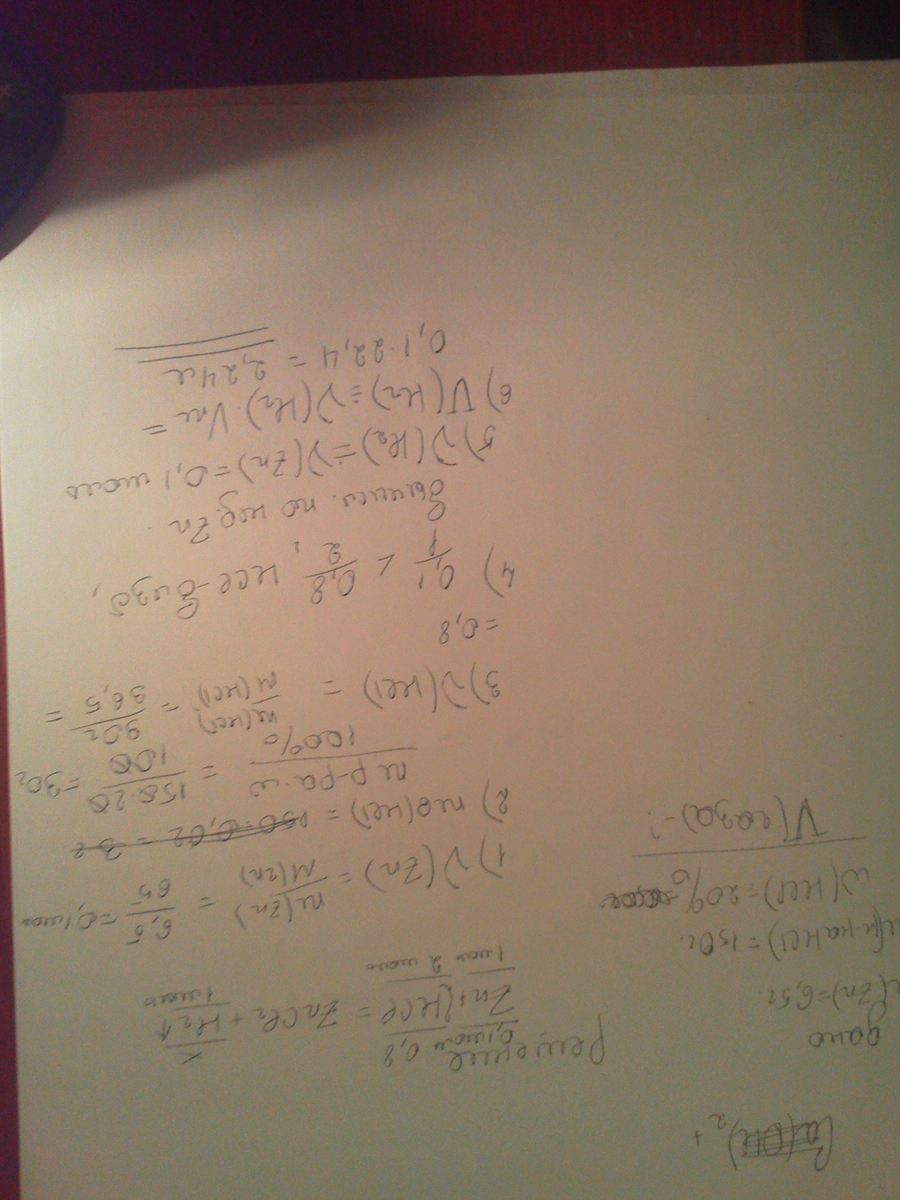 Ca(OH)₂ +
дано
m(Zn)=6,5г
m(р-раHCl)=150г.
ω(HCl)=20%
V(газа)-?
Решение
0,1моль 0,8 x
Zn+2HCl = ZnCl₂ + H₂↑
1моль 2 моль 1моль
1) ν(Zn) = m(Zn)/M(Zn) = 6,5/65 = 0,1моль
2) m(HCl) = 150·0,02 = 3г
m р-ра·ω/100% = 150·20/100 = 30г
3) ν(HCl) = m(HCl)/M(HCl) = 30г/36,5 =
= 0,8
4) 0,1/1 < 0,8/2, HCl - в изб,
вычисл. по нед. Zn
5) ν(H₂) = ν(Zn) = 0,1 моль
6) V(H₂) = ν(H₂)·Vm =
0,1·22,4 = 2,24л